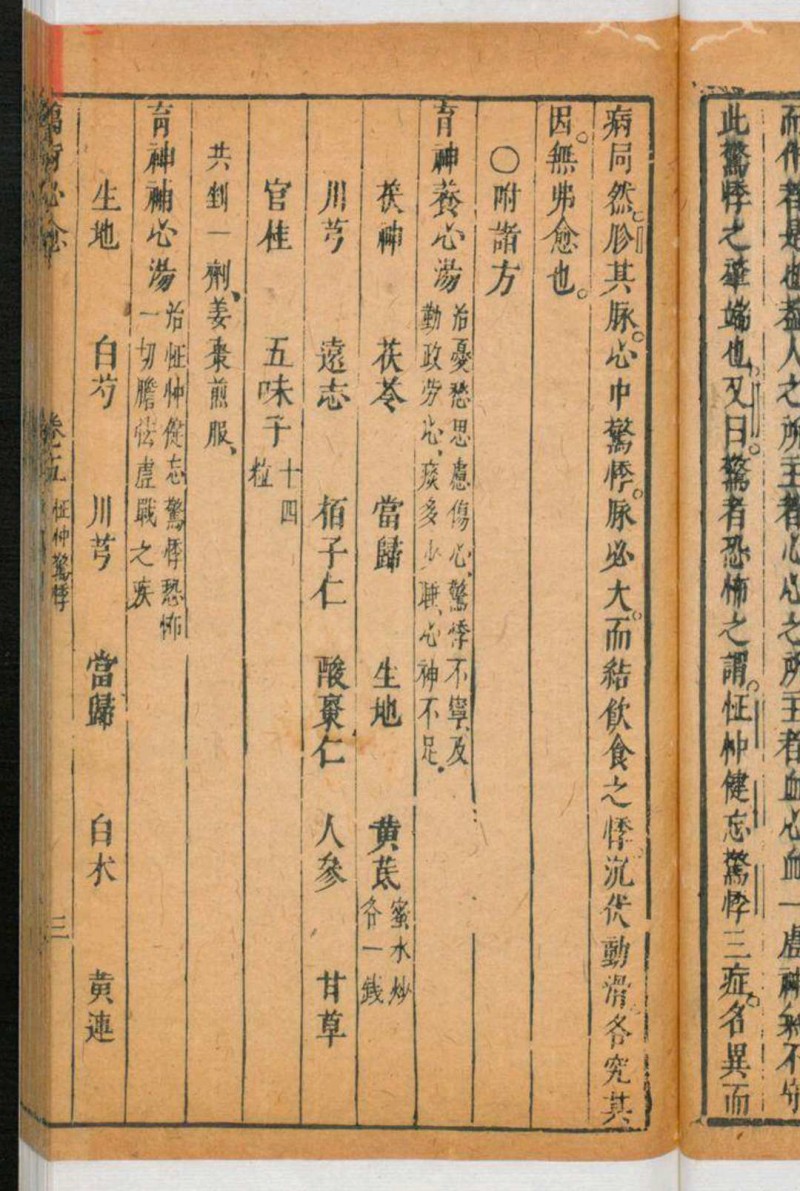 而作者是也蓋人之所主者心心之所主者血心血一虛神氣不守
此驚悸之肇端也又曰驚者恐怖之謂怔忡健忘驚悸三症名異而
病同然胗其脉心中驚悸脉必大而結飲食之悸沉伏動滑各究其
因無弗愈也
〇附諸方
育神養心湯 治憂愁思慮傷心驚悸不寧及
勤政勞心痰多少睡心神不足
茯神 茯苓 當歸 生地 黃芪 蜜水炒
各一錢
川芎 遠志 栢子仁 酸棗仁 人參 甘草
官桂 五味子 十四
粒
共剉一劑姜棗煎服
育神補心湯 治怔忡健忘驚悸恐怖
一切膽怯虛戰之疾
生地 白芍 川芎 當歸 白朮 黃連
卷五 怔忡驚悸 三